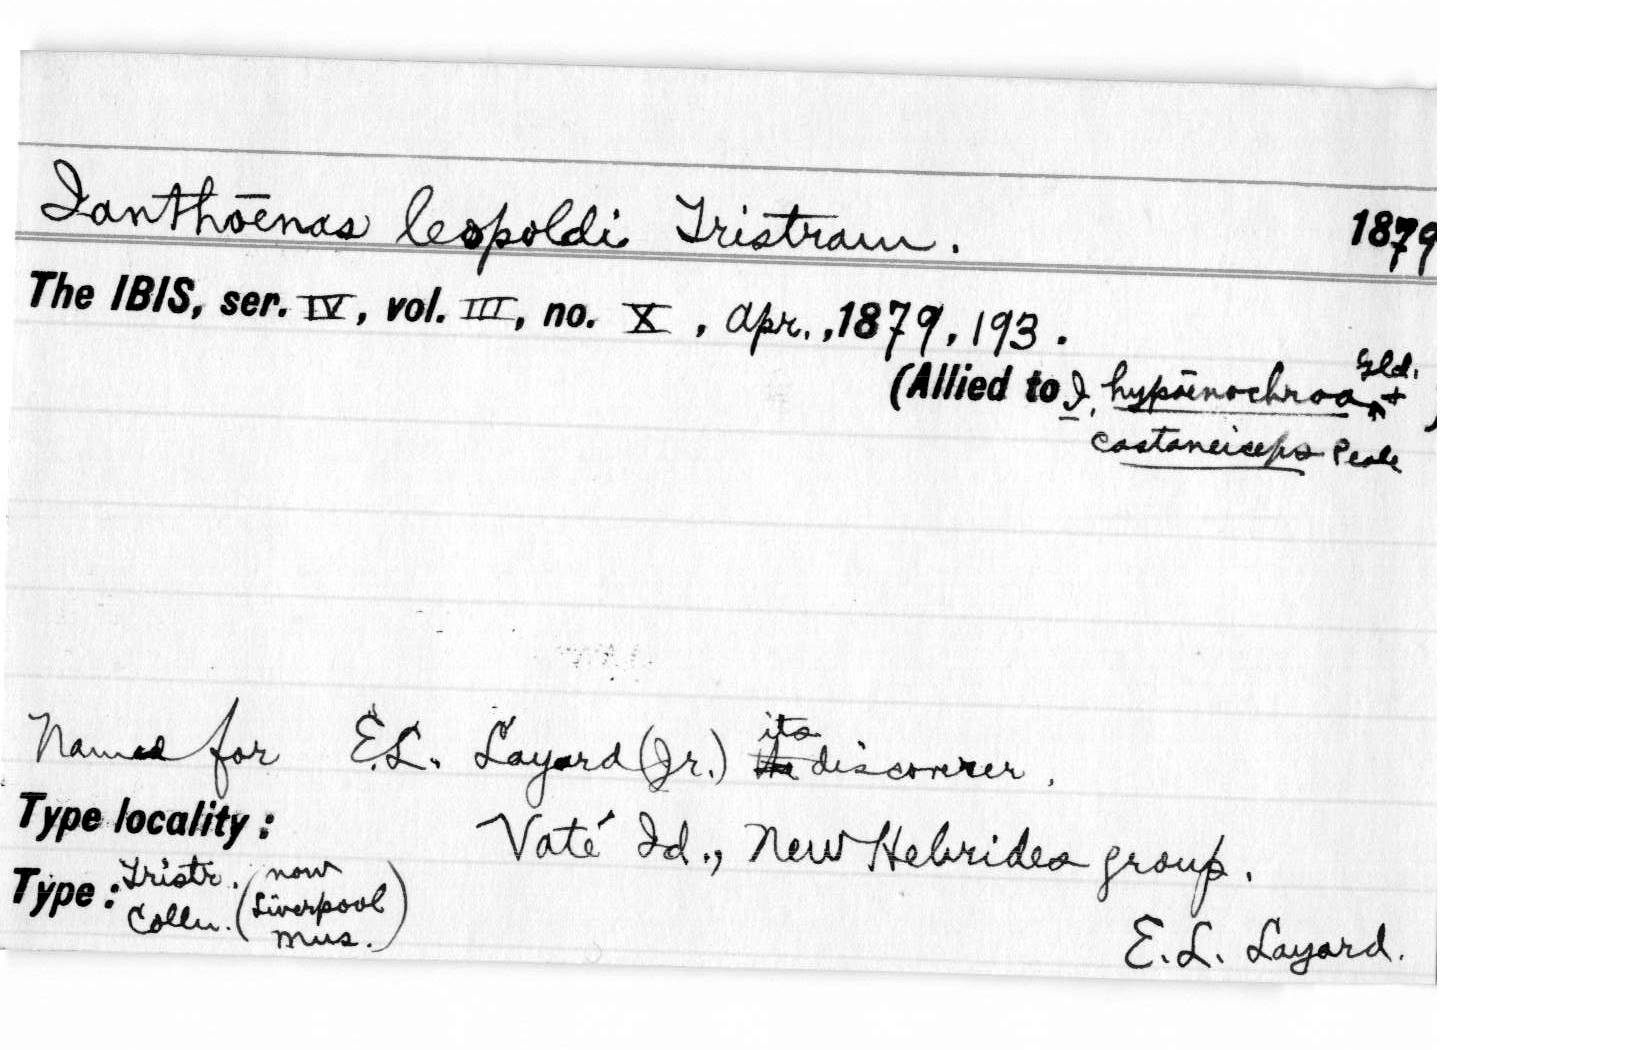 Ianthōenas leopoldi Tristram. 1879
The IBIS, ser. IV, vol. III, no. X, Apr., 1879, 193.
(Allied to I. hypōenochroa Gld. + )
castaneiceps Peale
Named for E.L. Layard (Jr.) the its discoverer.
Type locality: Vaté Id., New Hebrides group.
Type: Tristr. Colln. (now Liverpool Mus.)
E.L. Layard.